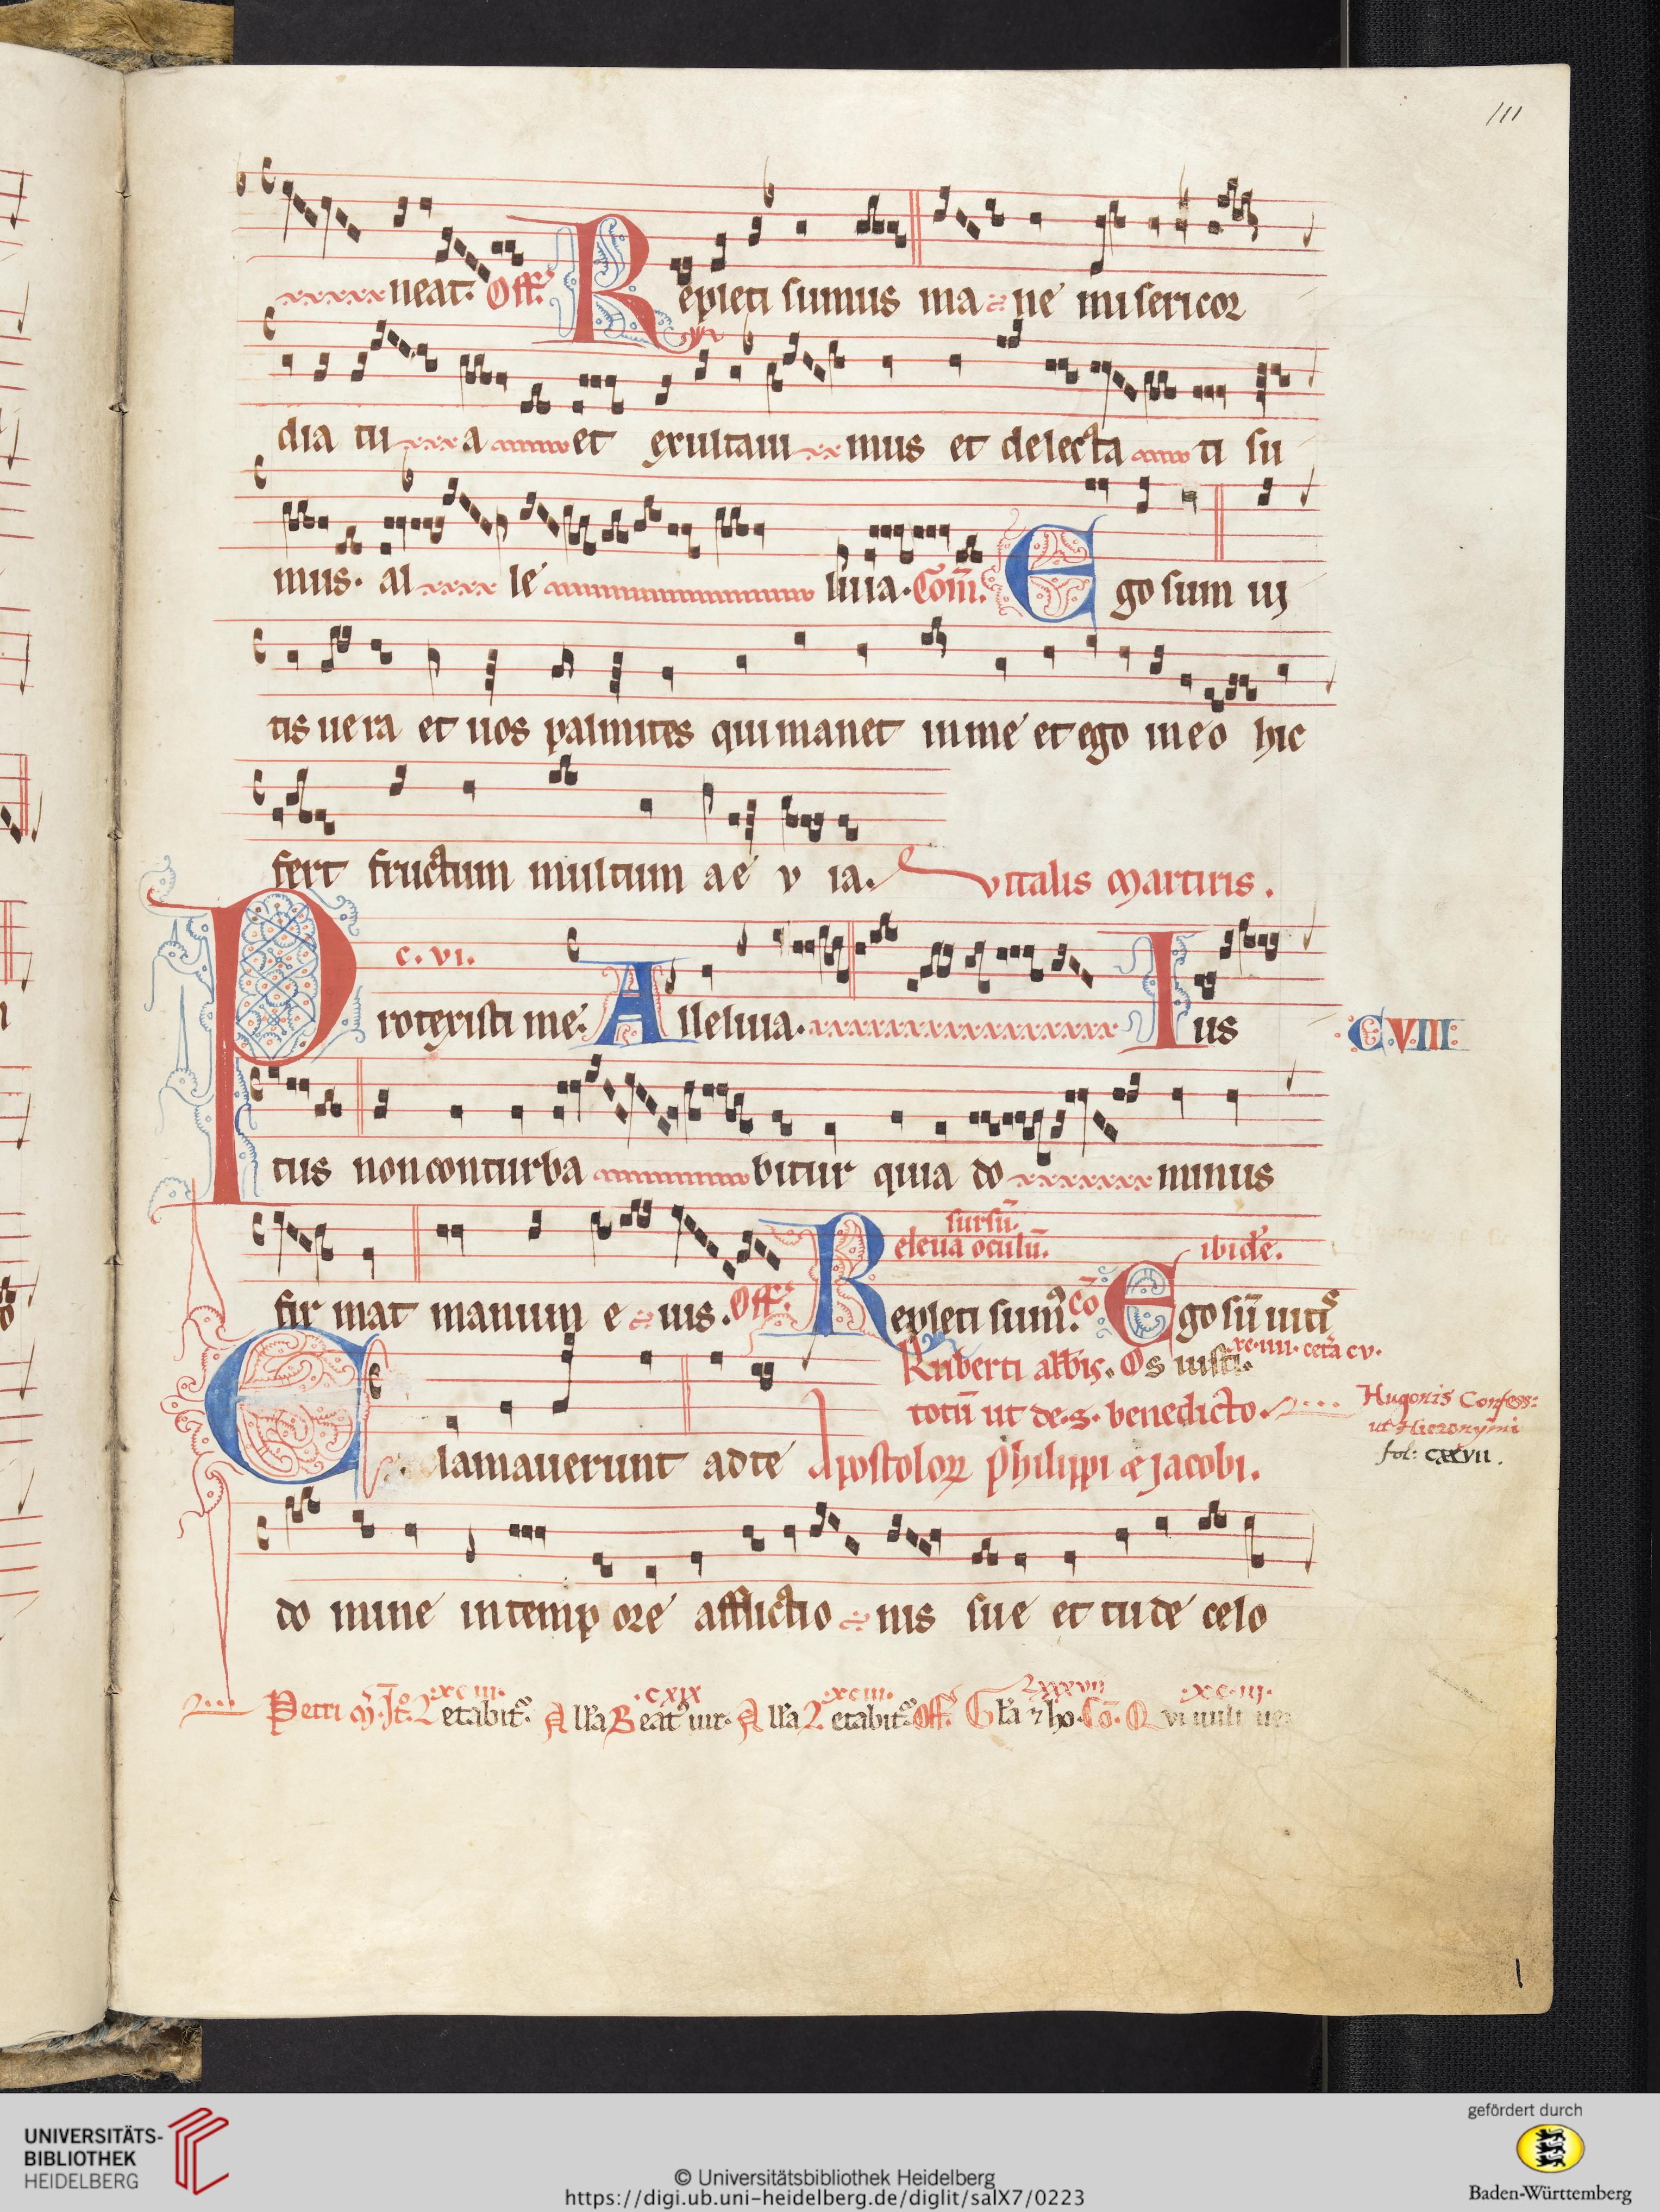 111
ueat. Off. Repleti sumus ma ne misericor
dia tu a et exultaui mus et delecta ti su
mus. al le luia. Com. Ego sum ui
tis uera et uos palmites qui manet in me et ego in eo hic
fert fructum multum a e v ia. Vitalis martiris.
c. vi.
Protexisti me. Alleluia. Ius
C.VIII.
tus non conturba bitur quia do minus
sursũ.
eleua oculũ. ibidẽ.
fir mat manum e ius. Off. Repleti sum9. Cõ Ego sũ uitis
Ruberti abbis. Os iusti. xc.iiii. cetã cv.
totũ ut de. s. benedicto.
Hugonis Confess:
ut Hieronymi
fol: cxxvii.
Clamauerunt ad te Apostoloꝝ Philippi & Jacobi.
do mine in temp ore afflictio nis sue et tu de celo
.xc iii. .cxix .xciii. Lxxxvii .xc.iij.
Petri m. It. Letabit. Alla Beat9 uir. Alla Letabit. Off. Gla & ho. Cõ. Qui uult
UNIVERSITÄTS-
BIBLIOTHEK
HEIDELBERG
© Universitätsbibliothek Heidelberg
https://digi.ub.uni-heidelberg.de/diglit/salX7/0223
gefördert durch
Baden-Württemberg